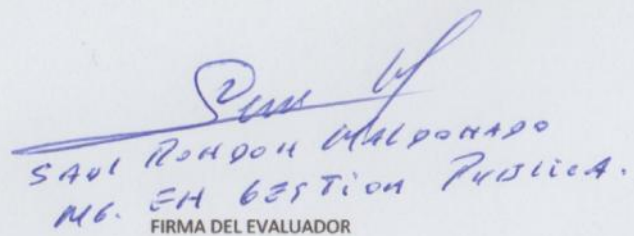 SAUL RONDON MALDONADO
MG. EN GESTION PUBLICA.
FIRMA DEL EVALUADOR